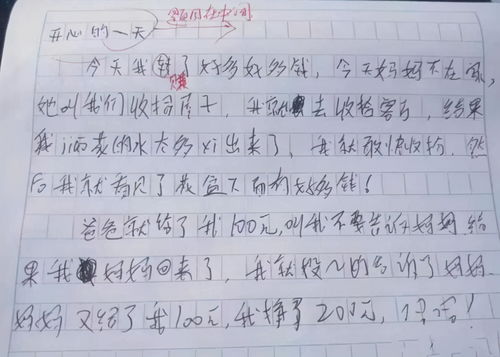 题目在中间
开心的一天
今天我赚了好多好多钱，今天妈妈不在家，
她叫我们收拾房子，我就去收拾客厅，结果
我 jiao 花的水太多 xi 出来了，我就敢快收拾，然
后我就看见了花盆下面有好多钱！
爸爸就给了我100元，叫我不要告诉妈妈结
果我妈妈回来了，我就投入的告诉了妈妈
妈妈又给了我100元，我挣了200元，